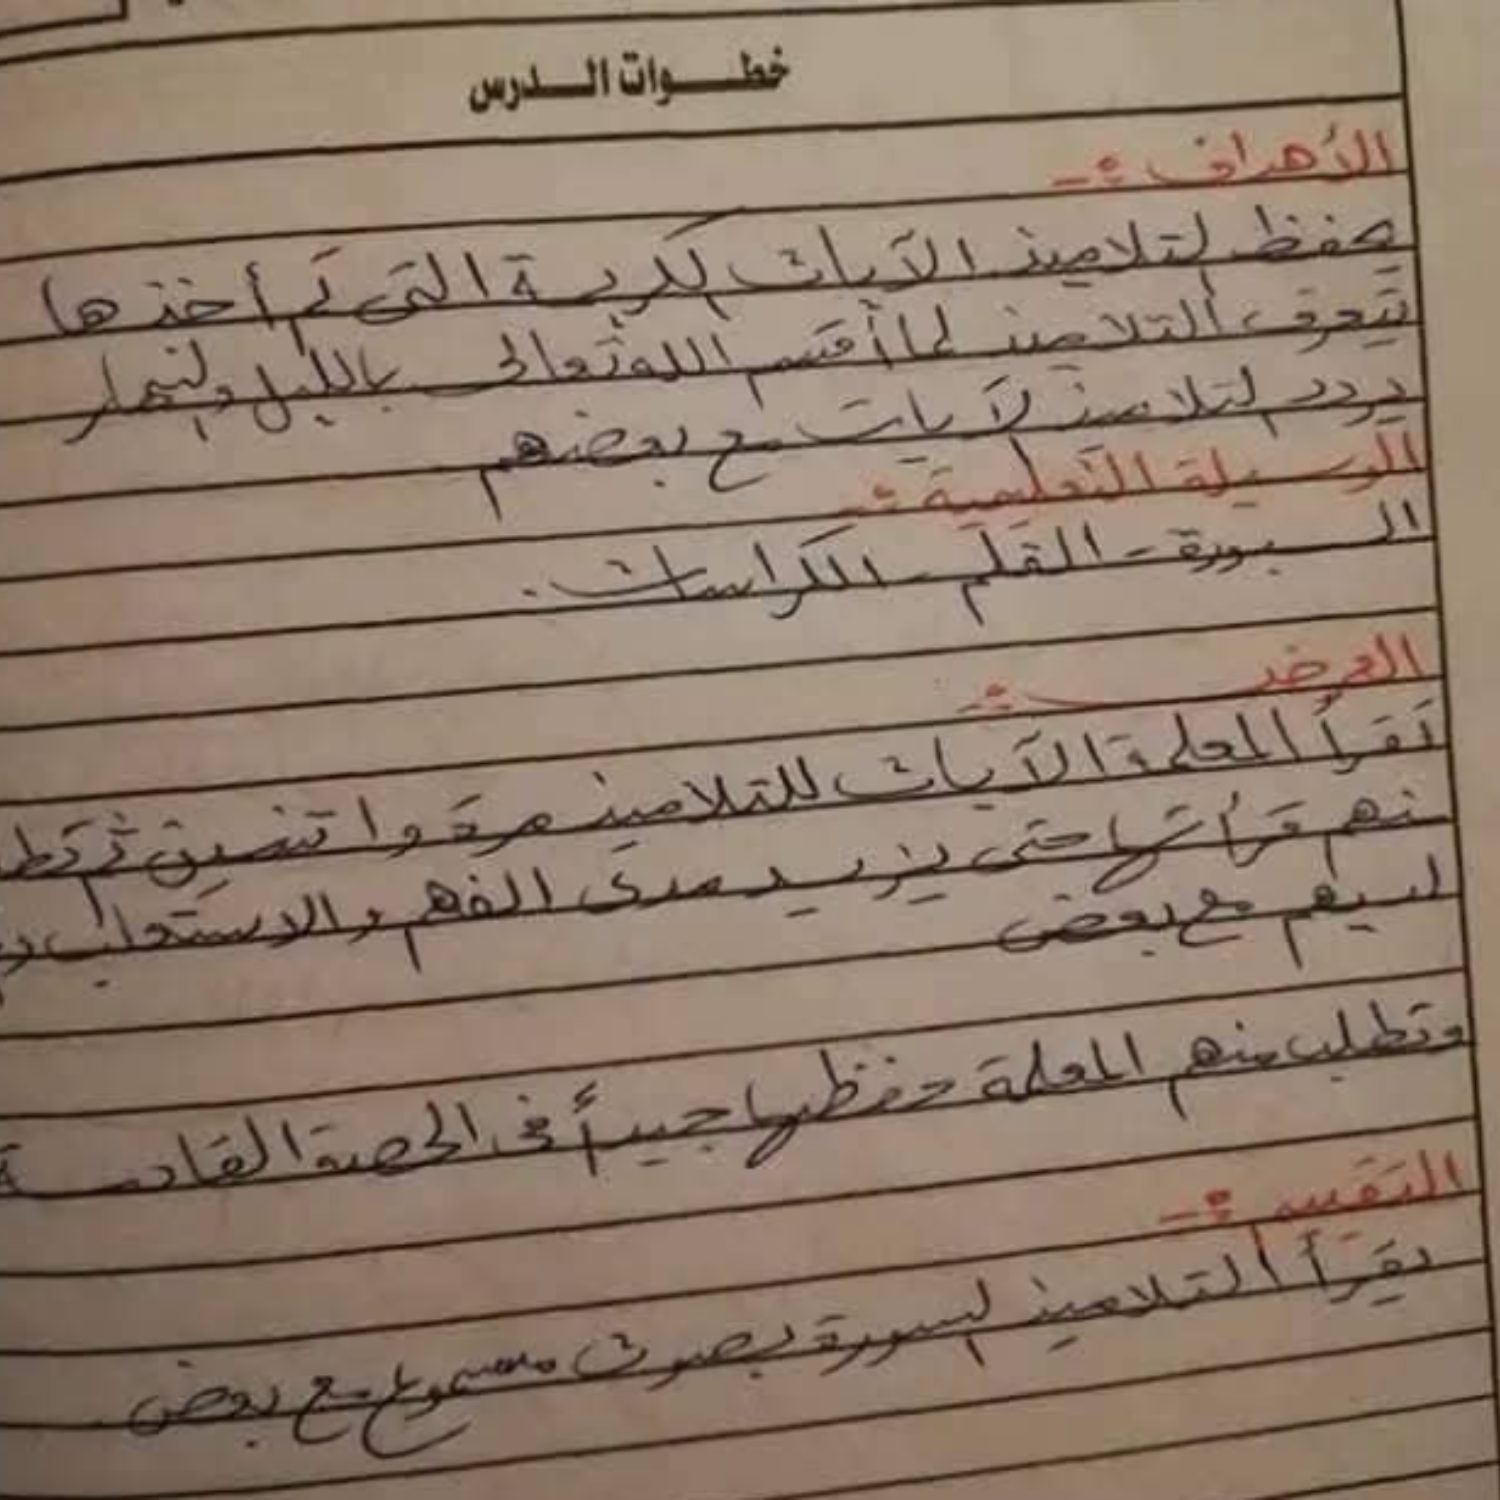 خطوات الدرس
الأهداف :-
يحفظ لتلاميذ الآيات الكريمة التي تم أخذها
يتعرف التلاميذ لما أقسم الله تعالى بالليل ولنهار
يردد لتلاميذ لآيات مع بعضهم
الوسيلة التعليمية :-
السبورة - القلم - الكراسات .
العرض :-
تقرأ المعلمة الآيات للتلاميذ مرة وا تنين ثم تطل
منهم قرأتها حتى يزيد مدى الفهم والاستعاب
مع بعض
وتطلب منهم المعلمة حفظها جيداً في الحصة القادمة
التقييم :-
يقرأ التلاميذ لسورة بصوت مسموع مع بعض .